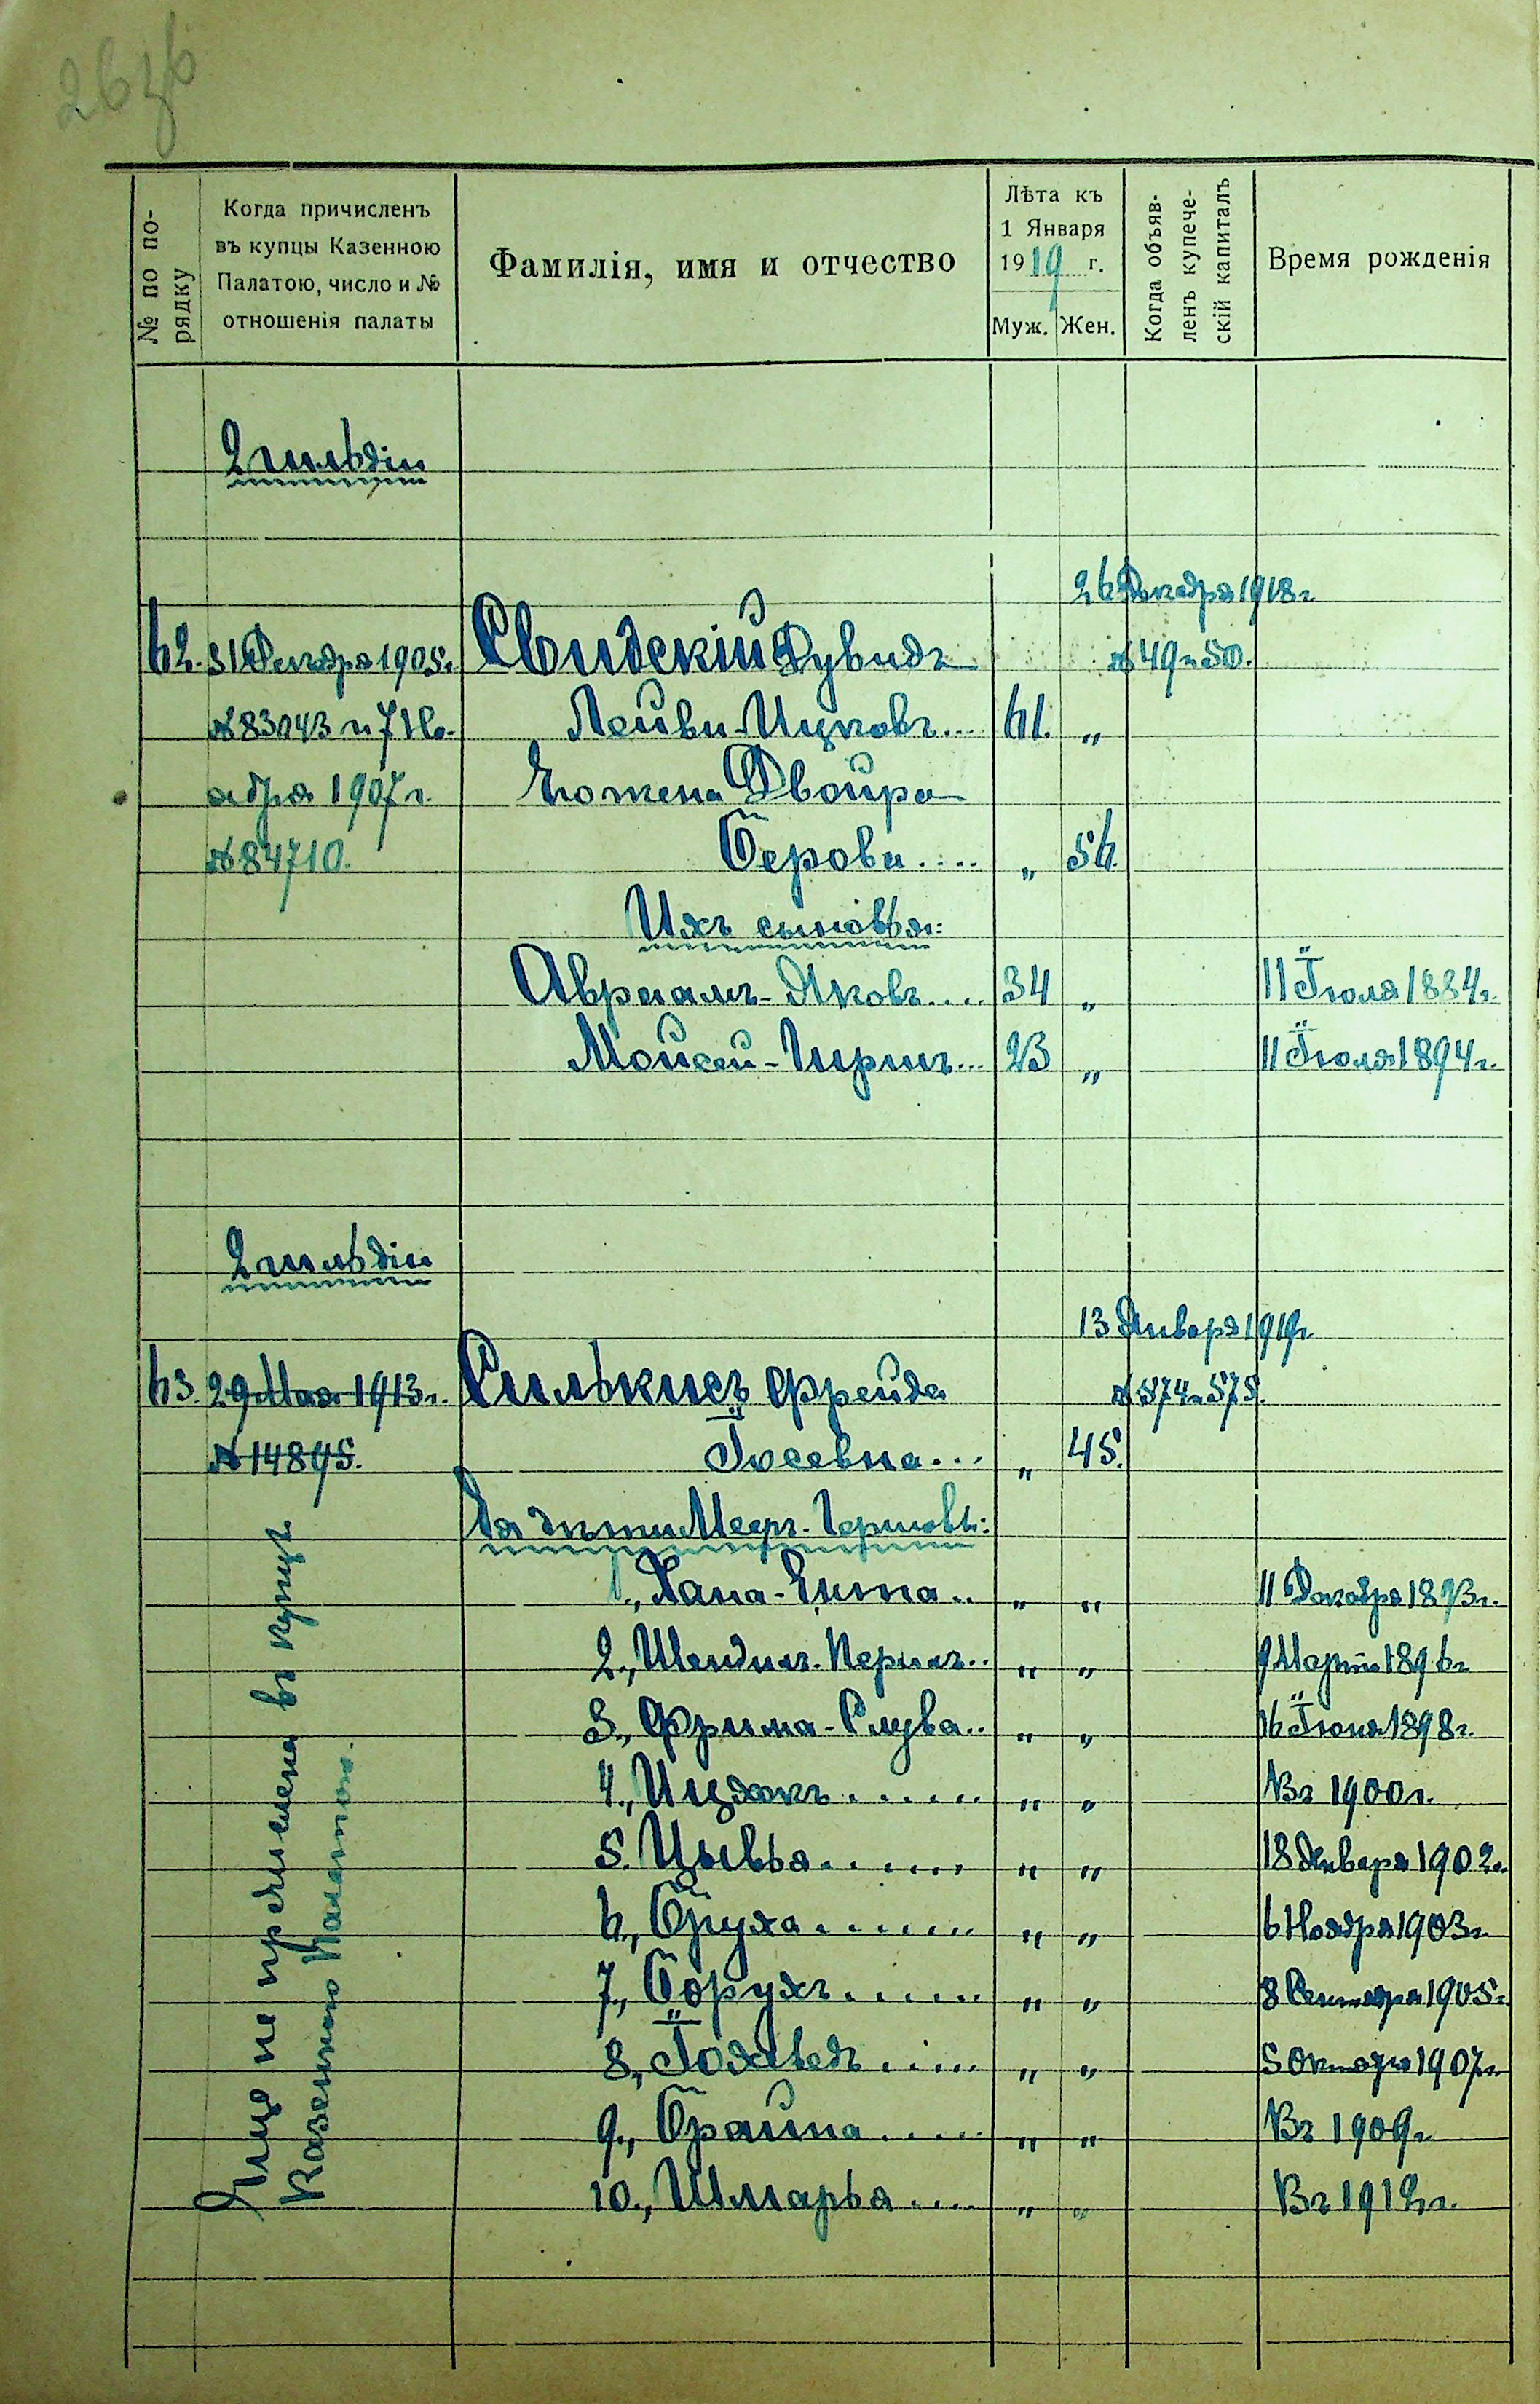 № по по-
рядку
Когда причисленъ
въ купцы Казенною
Палатою, число и №
отношенія палаты
Фамилія, имя и отчество
Лѣта къ
1 Января
1919 г.
Муж. Жен.
Когда объяв-
ленъ купече-
скій капиталъ
Время рожденія
2 гильдіи
26 Декабря 1918 г.
62. 31 Декабря 1905 г. Свидскій Дувидъ № 49 и 50.
№ 83143 и 7 Но- Лейви-Ицковъ... 61. „
ября 1907 г. Его жена Двойра
№ 84710. Берова.... „ 56.
Ихъ сыновья:
Авраамъ-Яковъ.... 34 „ 11 Іюля 1884 г.
Мойсей-Гиршъ... 23 „ 11 Іюля 1894 г.
2 гильдіи
13 Января 1919 г.
63. 29 Мая 1913 г. Силькисъ Фрейда № 574 и 575.
№ 14895. Іосевна... „ 45.
Ея дѣти Мееръ-Гершовы:
1., Хана-Ента.. „ „ 11 Декабря 1893 г.
2., Шендиль-Перыль.. „ „ 9 Марта 1896 г.
3., Фрима-Слува.. „ „ 16 Іюня 1898 г.
4., Ицхокъ...... „ „ Въ 1900 г.
5. Цывья...... „ „ 18 Января 1902 г.
6., Бруха...... „ „ 6 Ноября 1903 г.
7., Борухъ...... „ „ 8 Сентября 1905 г.
8., Іохаведъ..... „ „ 5 Октября 1907 г.
9., Брайна..... „ „ Въ 1909 г.
10., Шмарья.... „ „ Въ 1912 г.
Еще не пречислена въ купцы
Казенною Палатою.